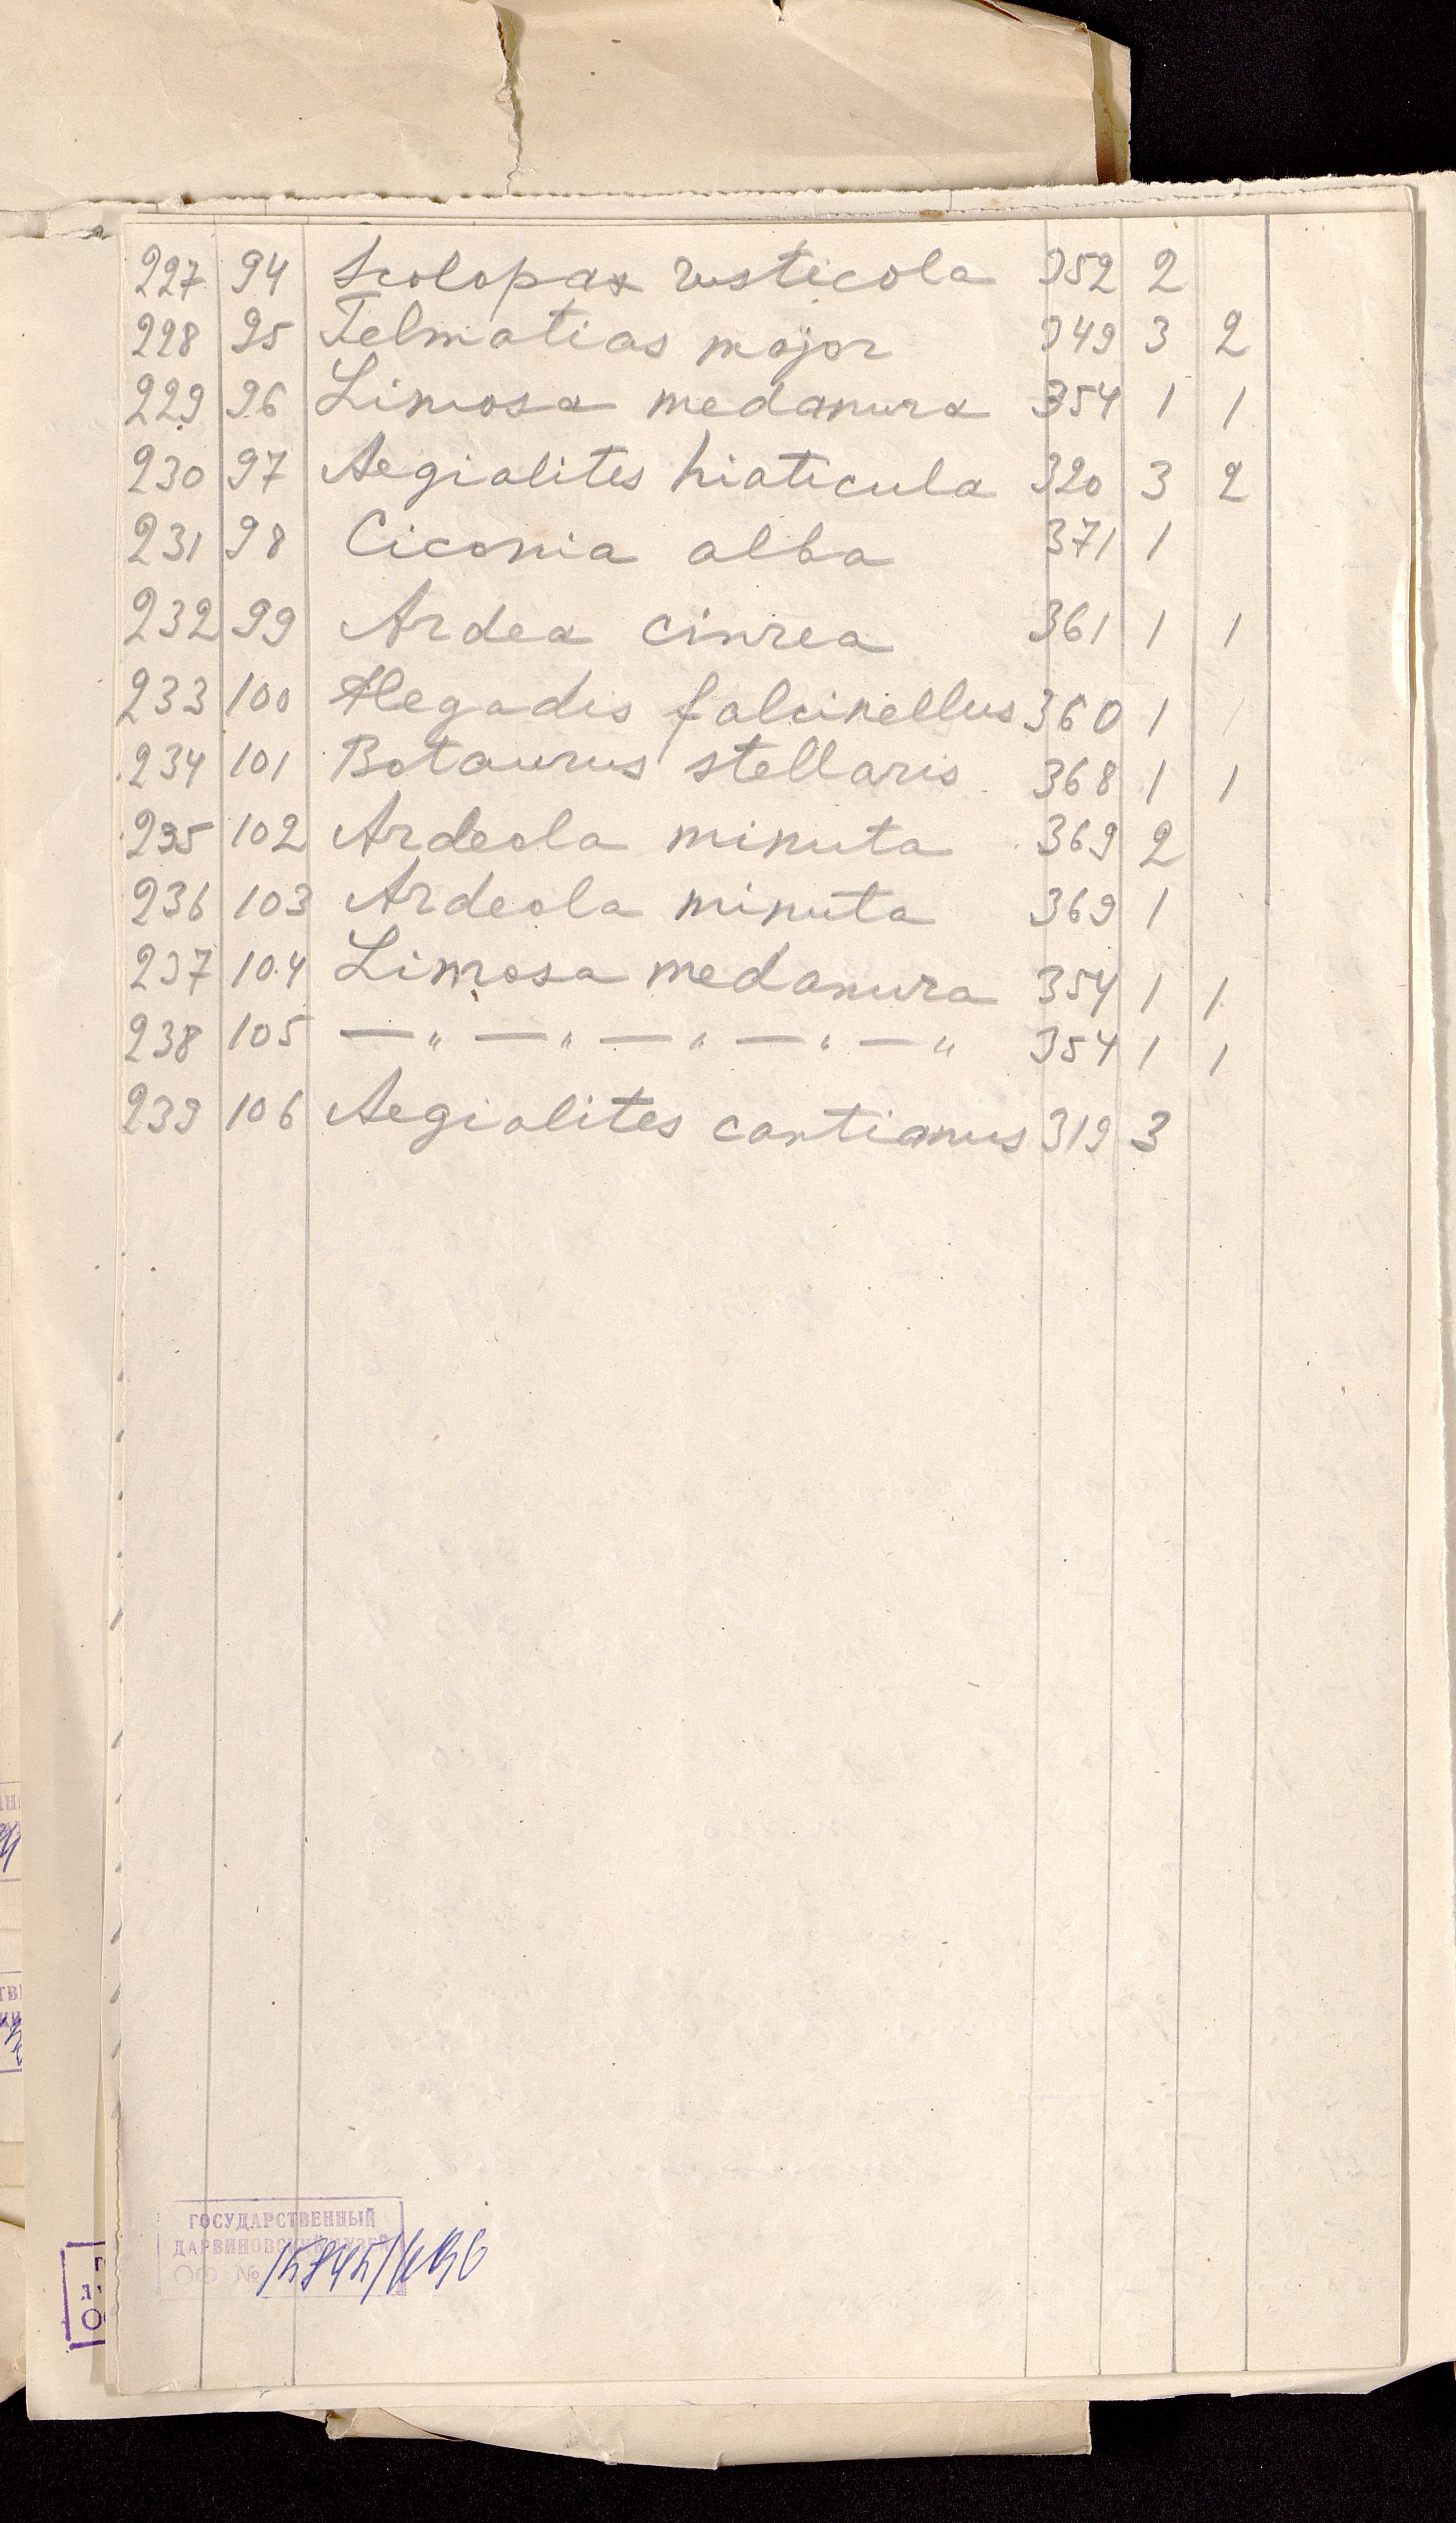 227 94 Scolopax rusticola 352 2
228 95 Telmatias major 349 3 2
229 96 Limosa medanura 354 1 1
230 97 Aegialites hiaticula 320 3 2
231 98 Ciconia alba 371 1
232 99 Ardea cinrea 361 1 1
233 100 Plegadis falcinellus 360 1 1
234 101 Botaurus stellaris 368 1 1
235 102 Ardeola minuta 369 2
236 103 Ardeola minuta 369 1
237 104 Limosa medanura 354 1 1
238 105 — " — " — " — " — " 354 1 1
239 106 Aegialites cantianus 319 3
ГОСУДАРСТВЕННЫЙ
ДАРВИНОВСКИЙ МУЗЕЙ
ОФ №